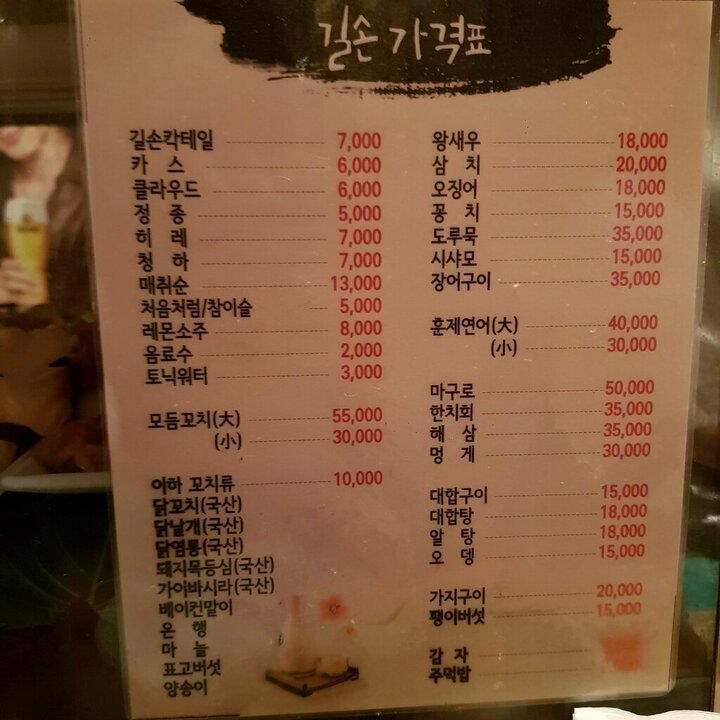 길손 가격표
길손칵테일 7,000
카 스 6,000
클라우드 6,000
정 종 5,000
히 레 7,000
청 하 7,000
매취순 13,000
처음처럼/참이슬 5,000
레몬소주 8,000
음료수 2,000
토닉워터 3,000
모듬꼬치(大) 55,000
(小) 30,000
이하 꼬치류 10,000
닭꼬치(국산)
닭날개(국산)
닭염통(국산)
돼지목등심(국산)
가이바시라(국산)
베이컨말이
은 행
마 늘
표고버섯
양송이
왕새우 18,000
삼 치 20,000
오징어 18,000
꽁 치 15,000
도루묵 35,000
시샤모 15,000
장어구이 35,000
훈제연어(大) 40,000
(小) 30,000
마구로 50,000
한치회 35,000
해 삼 35,000
멍 게 30,000
대합구이 15,000
대합탕 18,000
알 탕 18,000
오 뎅 15,000
가지구이 20,000
팽이버섯 15,000
감 자
주먹밥